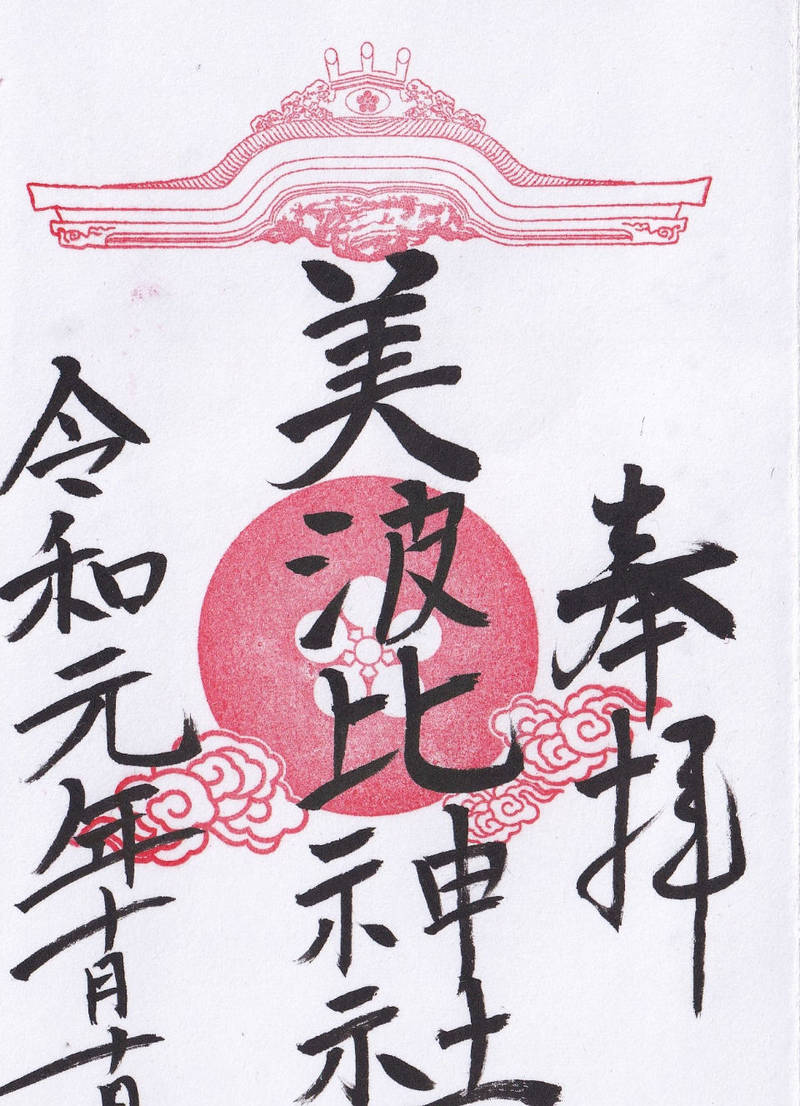 奉拝
美波比神社
令和元年十月十日